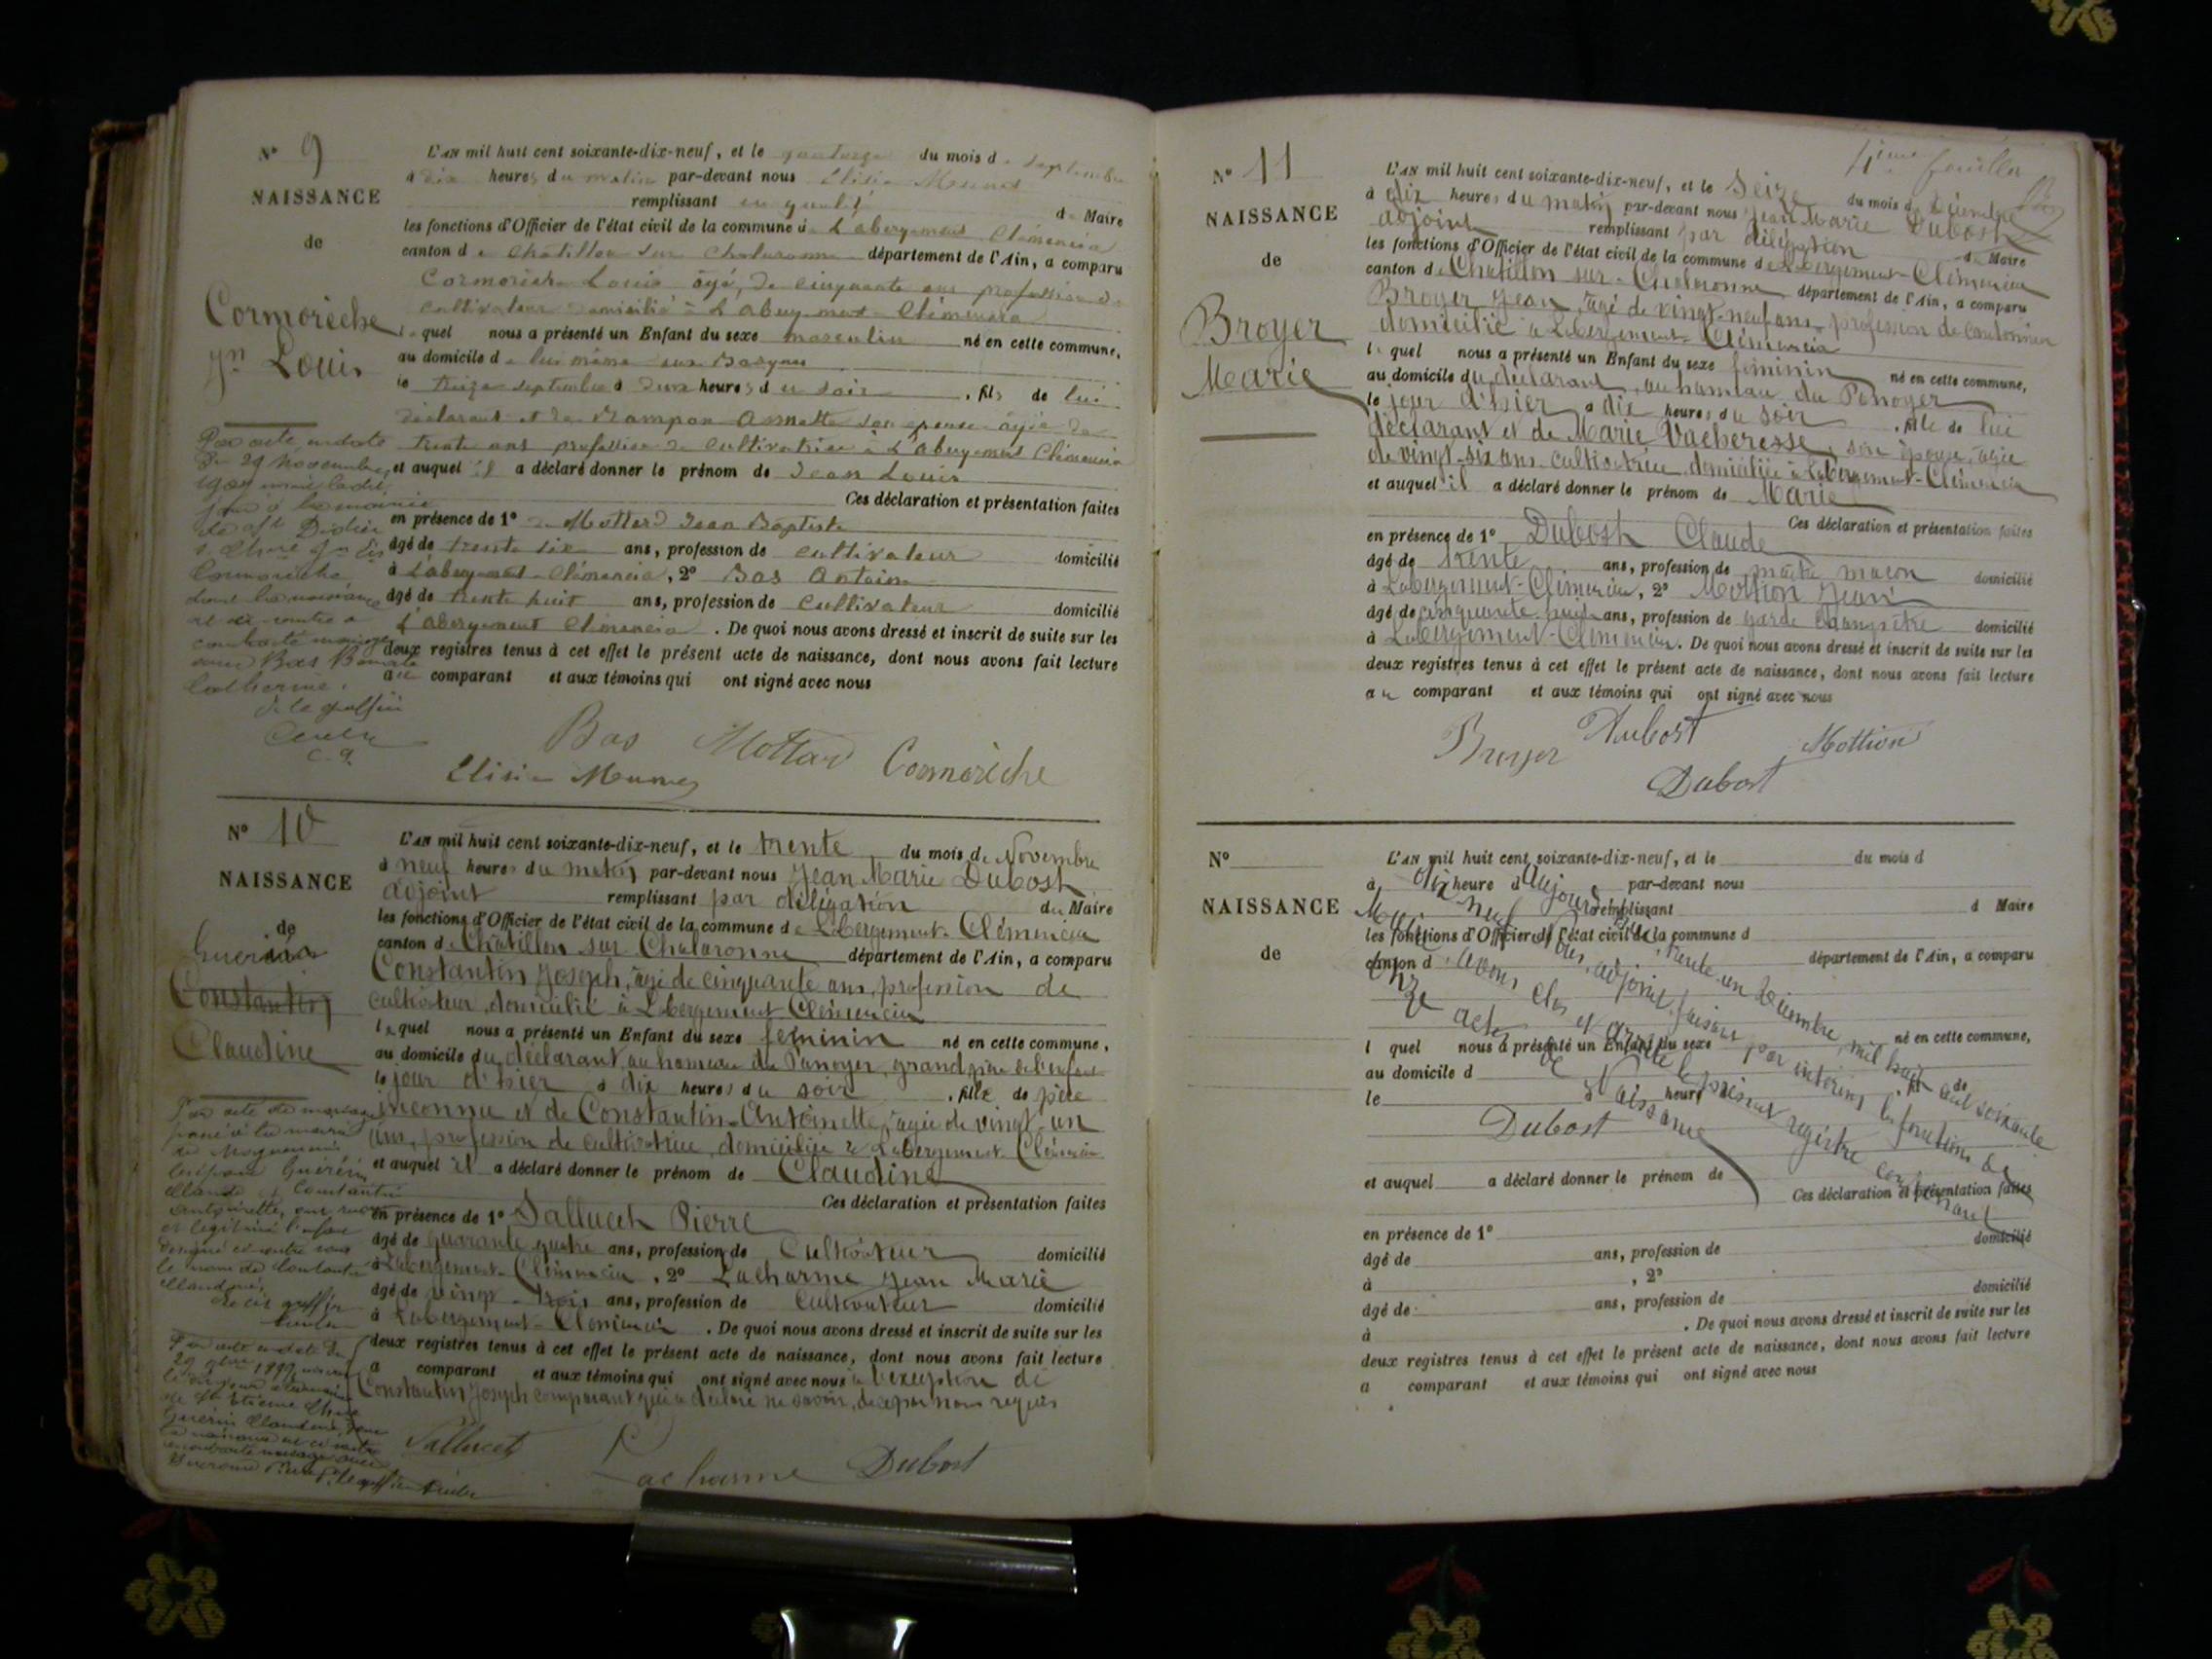 N° 9
NAISSANCE
de
Cormorèche
Jn Louis
L'AN mil huit cent soixante-dix-neuf, et le quatorze du mois de Septembre
à dix heures du matin par-devant nous Elisée
remplissant en qualité de Maire
les fonctions d'Officier de l'état civil de la commune de L'abergement Clémencia
canton de Chatillon sur Chalaronne département de l'Ain, a comparu
Cormorèche Louis âgé, de cinquante ans profession de
cultivateur domicilié à L'abergement Clémencia
lequel nous a présenté un Enfant du sexe masculin né en cette commune,
au domicile de lui même
le treize septembre à heures du soir, fils de lui
déclarant et de Rampon Annette son épouse âgée de
trente ans profession de cultivatrice à L'abergement Clémencia
et auquel il a déclaré donner le prénom de Jean Louis
Ces déclaration et présentation faites
en présence de 1° Mottard Jean Baptiste
âgé de trente six ans, profession de cultivateur domicilié
à Labergement Clémencia, 2° Bas Antoine
âgé de trente huit ans, profession de cultivateur domicilié
L'abergement Clémencia. De quoi nous avons dressé et inscrit de suite sur les
deux registres tenus à cet effet le présent acte de naissance, dont nous avons fait lecture
au comparant et aux témoins qui ont signé avec nous
Par acte en date
du 29 Novembre
jour à la mairie
de St Didier
s. Chne Jn Lis
Cormorèche
dont la naissance
est ci-contre a
contracté mariage
avec Bas
Catherine.
Bas Mottard Cormorèche
Elisée
N° 10
NAISSANCE
de
Guérin
Constantin
Claudine
L'AN mil huit cent soixante-dix-neuf, et le trente du mois de Novembre
à neuf heures du matin par-devant nous Jean Marie Dubost
adjoint remplissant par délégation du Maire
les fonctions d'Officier de l'état civil de la commune de Labergement-Clémencia
canton de Châtillon sur Chalaronne département de l'Ain, a comparu
Constantin Joseph, âgé de cinquante ans, profession de
cultivateur, domicilié à Labergement-Clémencia
lequel nous a présenté un Enfant du sexe féminin né en cette commune,
au domicile du déclarant, au hameau du Panoyer, grand père de l'enfant
le jour d'hier à dix heures du soir, fille de père
inconnu et de Constantin-Antoinette, âgée de vingt-un
ans, profession de cultivatrice, domiciliée à Labergement Clémencia
et auquel il a déclaré donner le prénom de Claudine
Ces déclaration et présentation faites
en présence de 1° Pierre
âgé de quarante quatre ans, profession de Cultivateur domicilié
à Labergement-Clémencia, 2° Lacharme Jean Marie
âgé de vingt-trois ans, profession de Cultivateur domicilié
à Labergement-Clémencia. De quoi nous avons dressé et inscrit de suite sur les
deux registres tenus à cet effet le présent acte de naissance, dont nous avons fait lecture
a comparant et aux témoins qui ont signé avec nous à l'exception de
Constantin Joseph comparant qui a déclaré ne savoir, de ce par nous requis
Par acte de mariage
passé à la mairie
les époux Guérin
Claude et Constantin
Antoinette, ont
et légitimé l'enfant
désigné ci-contre sous
le nom de Constantin
Claudine
Par acte en date du
Guérin Claudine, dont
la naissance est ci-contre
a contracté mariage avec
Lacharme Dubost
4ième feuillet
N° 11
NAISSANCE
de
Broyer
Marie
L'AN mil huit cent soixante-dix-neuf, et le seize du mois de Décembre
à dix heures du matin par-devant nous Jean Marie Dubost
adjoint remplissant par délégation du Maire
les fonctions d'Officier de l'état civil de la commune de Labergement-Clémencia
canton de Châtillon sur-Chalaronne département de l'Ain, a comparu
Broyer Jean, âgé de vingt-neuf ans, profession de cantonnier
domicilié à Labergement-Clémencia
lequel nous a présenté un Enfant du sexe féminin né en cette commune,
au domicile du déclarant, au hameau du Panoyer
le jour d'hier à dix heures du soir, fille de lui
déclarant et de Marie Vacheresse, son épouse, âgée
de vingt-six ans cultivatrice, domiciliée à Labergement-Clémencia
et auquel il a déclaré donner le prénom de Marie
Ces déclaration et présentation faites
en présence de 1° Dubost Claude
âgé de trente ans, profession de maître maçon domicilié
à Labergement-Clémencia, 2° Mottion Jean
âgé de cinquante-huit ans, profession de garde champêtre domicilié
à Labergement-Clémencia. De quoi nous avons dressé et inscrit de suite sur les
deux registres tenus à cet effet le présent acte de naissance, dont nous avons fait lecture
au comparant et aux témoins qui ont signé avec nous
Broyer Dubost Mottion
Dubost
N°
NAISSANCE
de
L'AN mil huit cent soixante-dix-neuf, et le du mois d
à heure d par-devant nous
remplissant d Maire
les fonctions d'Officier de l'état civil de la commune d
canton d département de l'Ain, a comparu
l quel nous a présenté un Enfant du sexe né en cette commune,
au domicile d
le à heure d , fil de
et auquel a déclaré donner le prénom de
Ces déclaration et présentation faites
en présence de 1° domicilié
âgé de ans, profession de
à , 2° domicilié
âgé de ans, profession de
à . De quoi nous avons dressé et inscrit de suite sur les
deux registres tenus à cet effet le présent acte de naissance, dont nous avons fait lecture
a comparant et aux témoins qui ont signé avec nous
Aujourd'hui, trente-un Décembre, mil huit cent soixante
dix neuf, nous, adjoint, faisant par intérim les fonctions de
Maire, avons clos et arrêté le présent registre contenant
onze actes de Naissance
Dubost